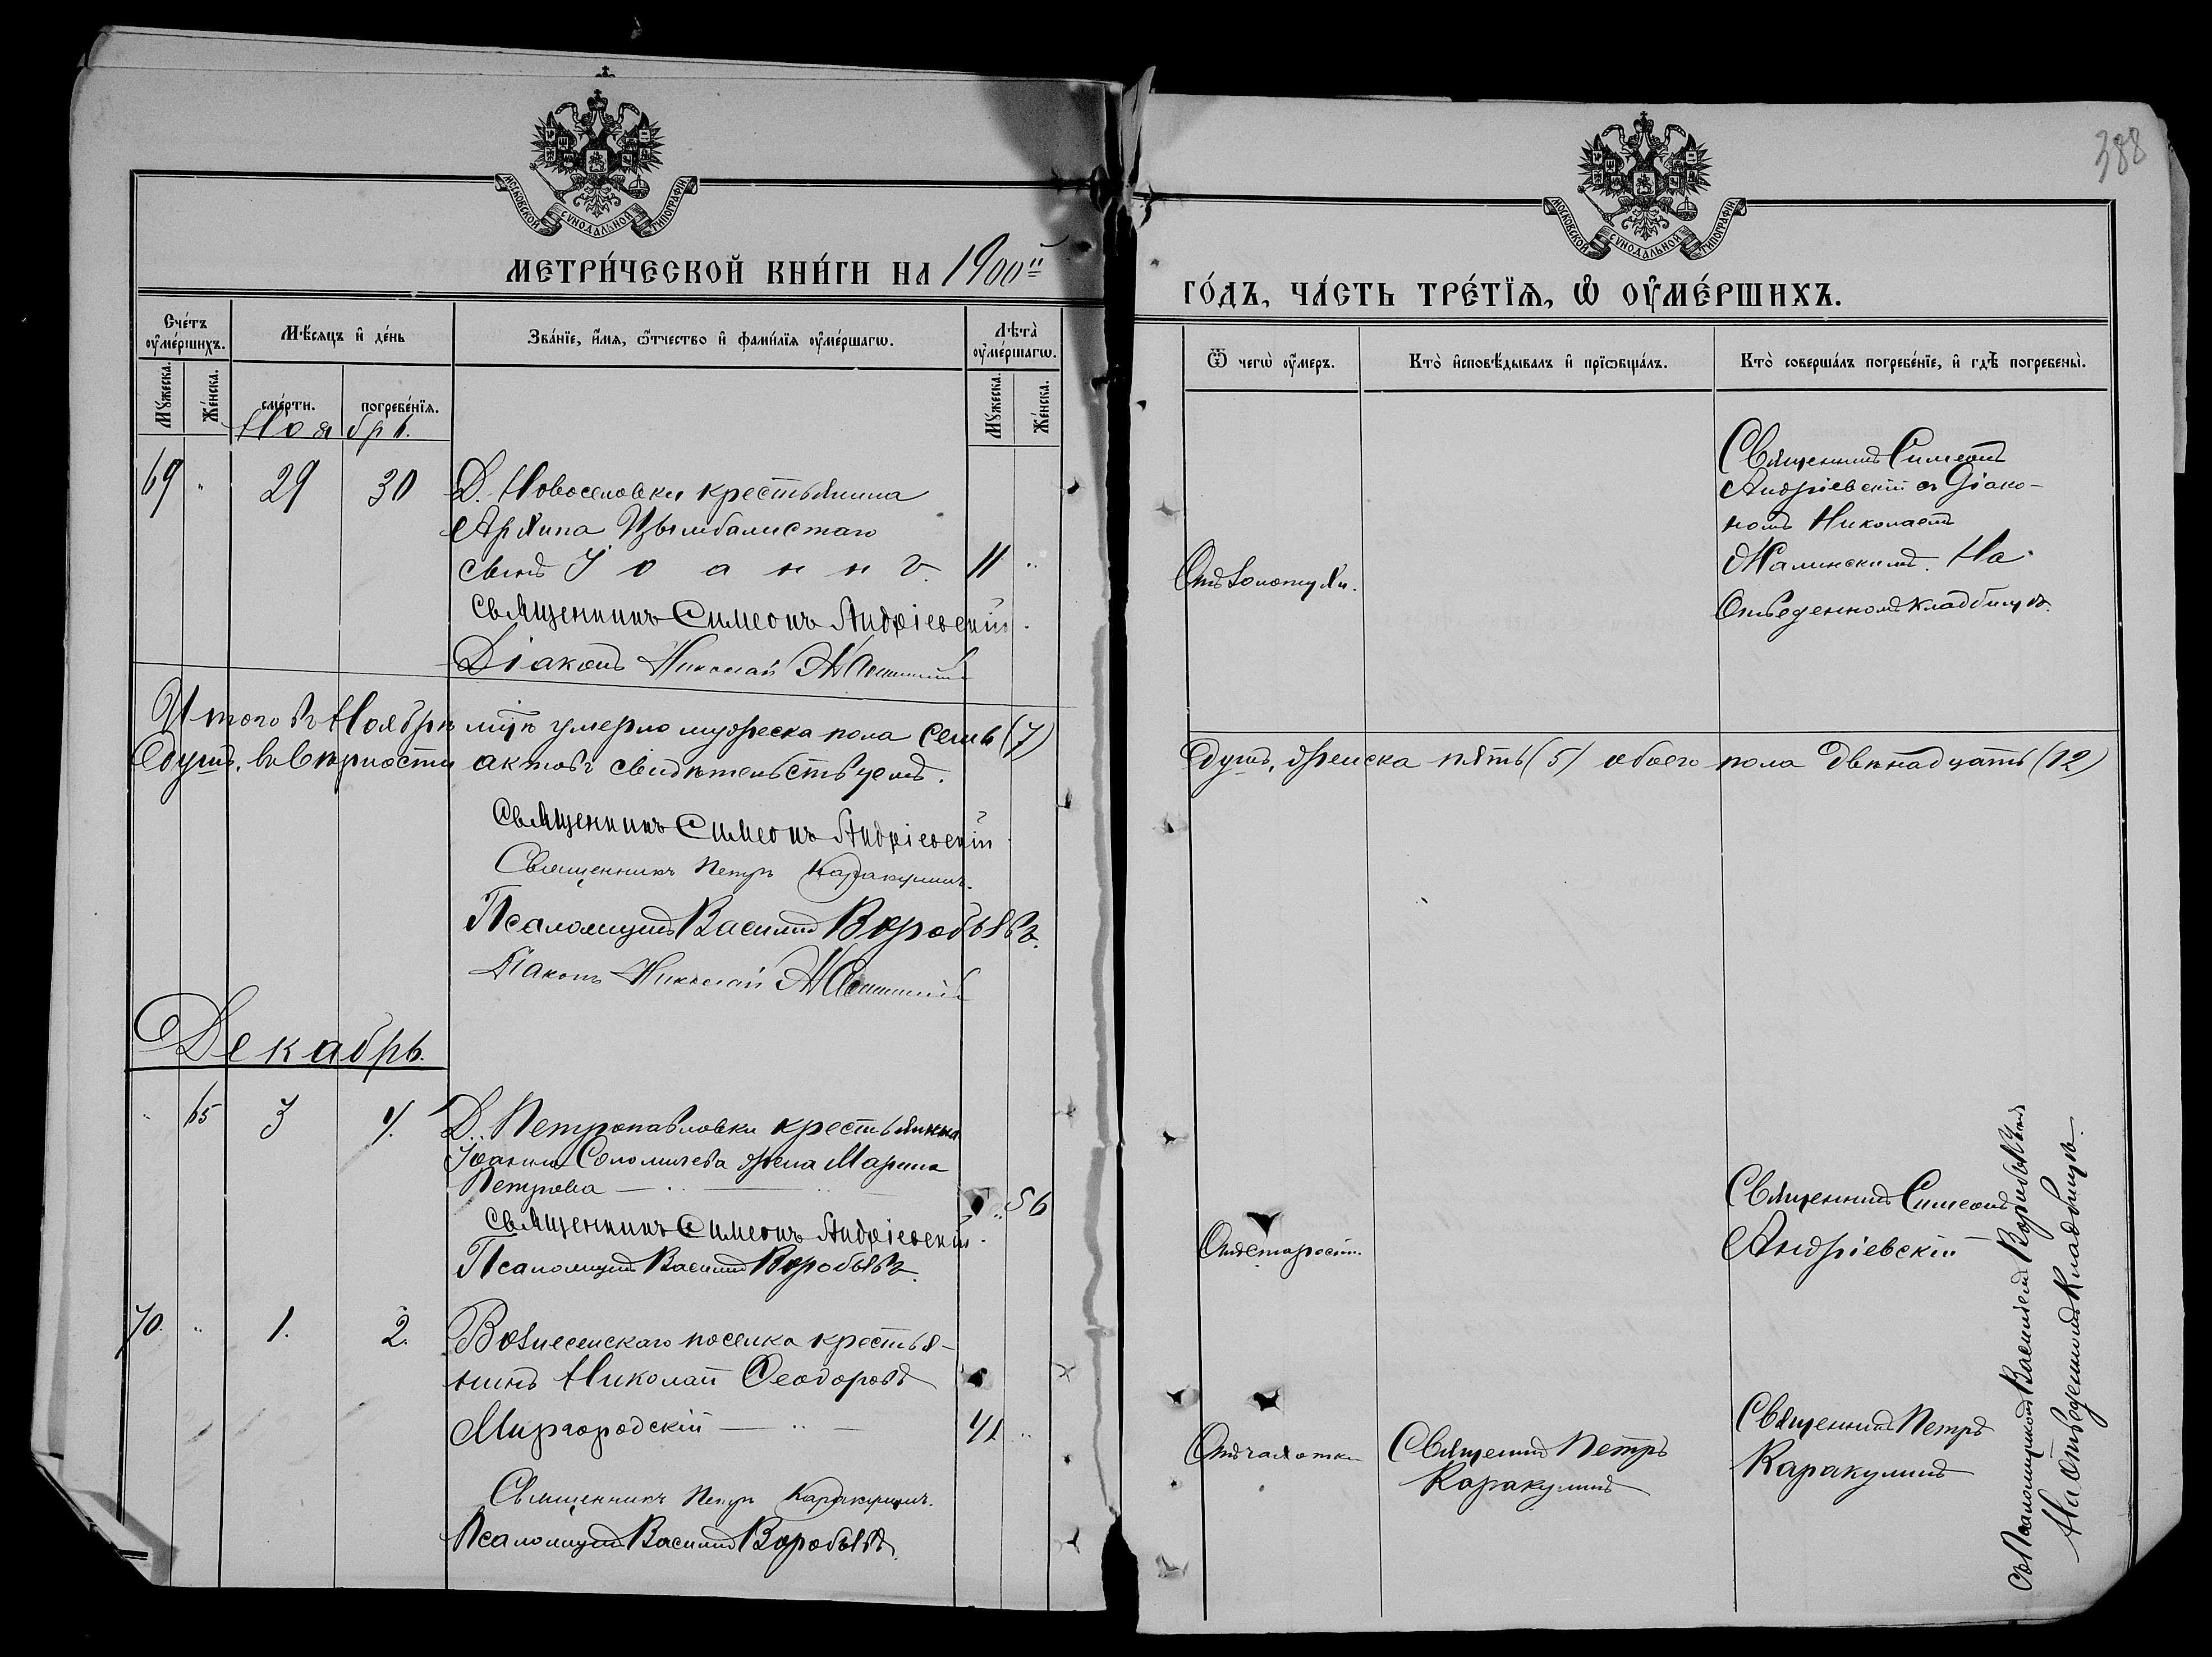 388
МОСКОВСКОЙ СѴНОДАЛЬНОЙ ТИПОГРАФІИ
МОСКОВСКОЙ СѴНОДАЛЬНОЙ ТИПОГРАФІИ
МЕТРИ́ЧЕСКОЙ КНИ́ГИ НА 1900й
ГО́ДЪ, ЧА́СТЬ ТРЕ́ТЇѦ, Ѡ҆ ОУ҆МЕ́РШИХЪ.
Сче́тъ оу҆ме́ршихъ.
Мѣ́сяцъ и҆ де́нь
Зва́нїе, и҆́мѧ, ѻ҆́тчество и҆ фами́лїѧ оу҆ме́ршагѡ.
Лѣта̀ оу҆ме́ршагѡ.
Ѿ чегѡ̀ оу҆́меръ.
Кто̀ и҆сповѣ́дывалъ и҆ прїѻбща́лъ.
Кто̀ соверша́лъ погребе́нїе, и҆ гдѣ̀ погребены̀.
Мꙋ́жеска.
Же́нска.
сме́рти.
погребе́нїѧ.
Мꙋ́жеска.
Же́нска.
Ноябрь.
69 " 29 30 Д. Новоселовки крестьянина
Архипа Цымбалистаго
сынъ Іоаннъ. 11 "
Священникъ Симеонъ Андріевскій.
Діаконъ Николай
Отъ золотухи.
Священникъ Симеонъ
Андріевскій съ Діако-
номъ Николаемъ
Жалинскимъ. На
отведенномъ кладбищѣ.
Итого въ Ноябрѣ мцѣ умерло мужеска пола семь (7)
душъ, женска пять (5) обоего пола двѣнадцать (12)
душъ. въ вѣрности актовъ свидѣтельствуемъ.
Священникъ Симеонъ Андріевскій
Священникъ Петръ Каракулинъ.
Псаломщикъ Василій Воробьевъ.
Діаконъ Николай
Декабрь.
" 65 3 4. Д. Петропавловки крестьянина
Іоанна Соломичева жена Марина
Петрова " 56
Священникъ Симеонъ Андріевскій.
Псаломщикъ Василій Воробьевъ.
Отъ старости.
Священникъ Симеонъ
Андріевскій
70. " 1. 2. Вознесенскаго поселка крестья-
нинъ Николай Ѳеодоровъ
Миргородскій 41 "
Священникъ Петръ Каракулинъ.
Псаломщикъ Василій Воробьевъ.
Отъ чахотки
Священникъ Петръ
Каракулинъ
Священникъ Петръ
Каракулинъ
съ Псаломщикомъ Василіемъ Воробьевымъ
На отведенномъ кладбищѣ.